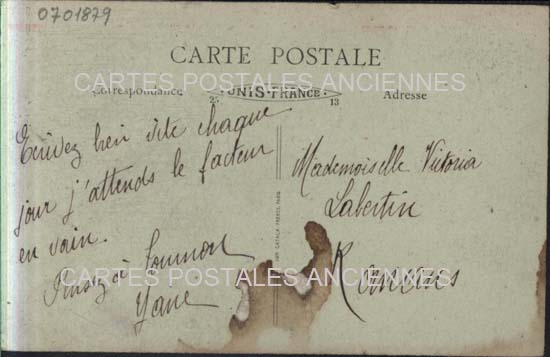 0701879
CARTE POSTALE
CARTES POSTALES ANCIENNES
Correspondance
25 UNIS-FRANCE 13
Adresse
Ecrivez bien vite chaque
jour j'attends le facteur
en vain.
à
Yane
IMP. CATALA FRÈRES, PARIS
Mademoiselle Victoria
Labertin
CARTES POSTALES ANCIENNES